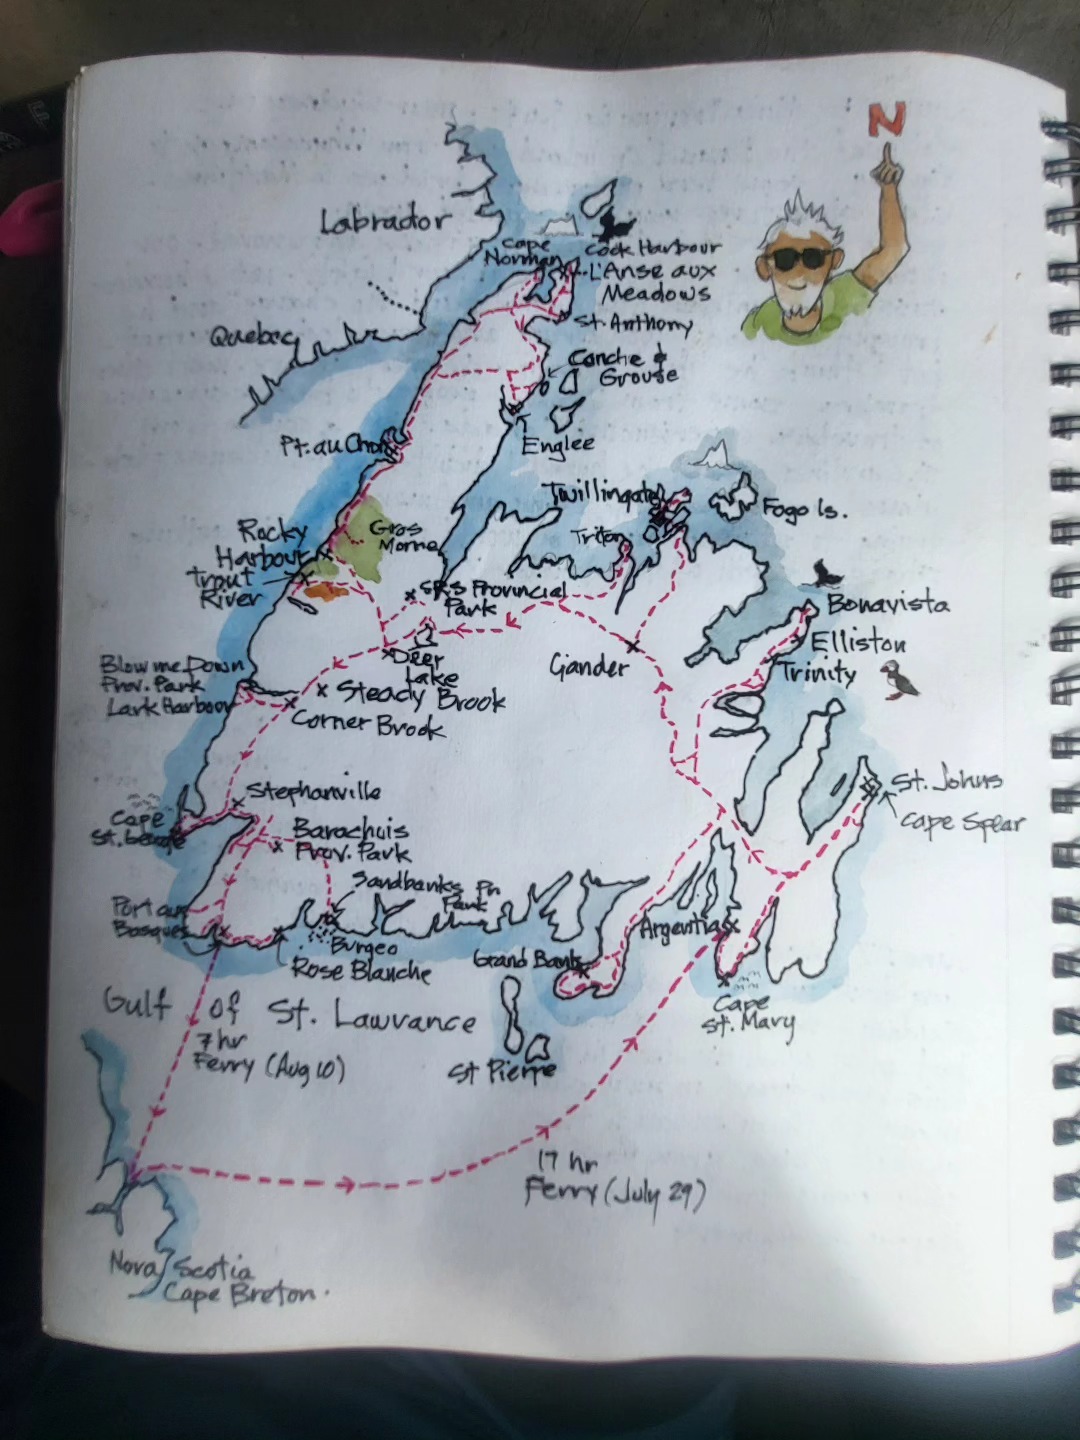 N
Labrador
Cape
Norman
Cook Harbour
L'Anse aux
Meadows
St. Anthony
Quebec
Conche &
Grouse
Englee
Pt. au Choix
Twillingate
Fogo Is.
Triton
Rocky
Harbour
Gros
Morne
Trout
River
SRS Provincial
Park
Bonavista
Elliston
Trinity
Gander
Deer
Lake
Blow me Down
Prov. Park
Lark Harbour
Steady Brook
Corner Brook
Stephanville
Cape
St. George
St. Johns
Cape Spear
Barachuis
Prov. Park
Sandbanks Pr.
Park
Port au
Basques
Burgeo
Rose Blanche
Argentia
Grand Bank
Cape
St. Mary
Gulf of St. Lawrance
7 hr
Ferry (Aug 10)
St Pierre
17 hr
Ferry (July 29)
Nova Scotia
Cape Breton.